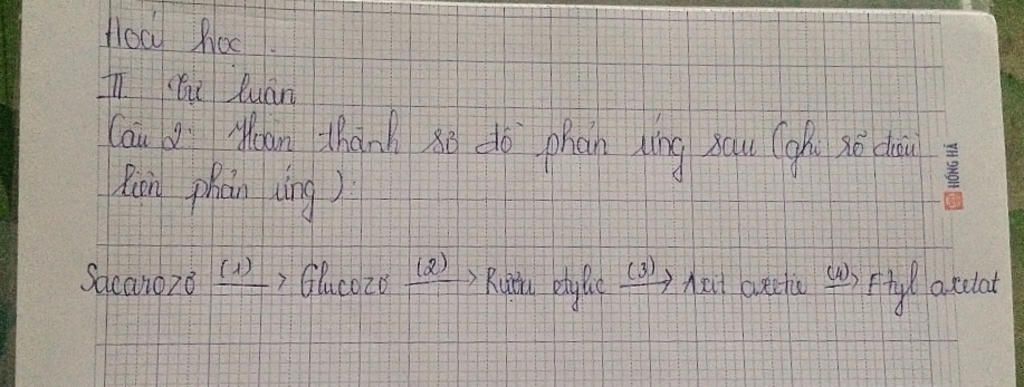 Hoá học.
II Tự luận
Câu 2: Hoàn thành sơ đồ phản ứng sau (ghi rõ điều
kiện phản ứng):
HỒNG HÀ
Sacarozơ (1)→ Glucozơ (2)→ Rượu etylic (3)→ Axit axetic (4)→ Etyl axetat